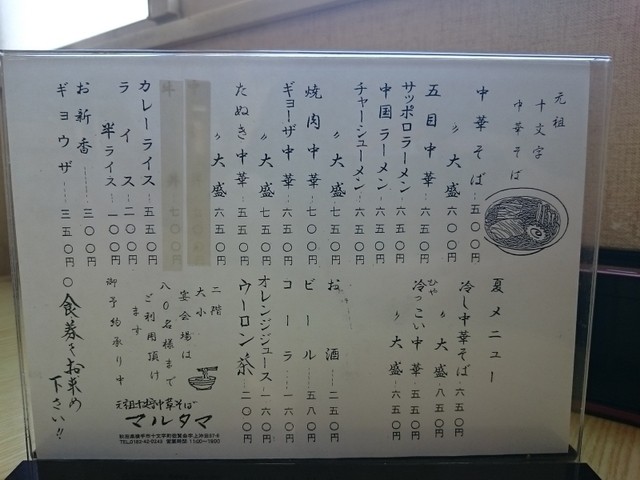 元祖
十文字
中華そば
中華そば……五〇〇円
〃 大盛 六〇〇円
五目中華・六五〇円
サッポロラーメン 六五〇円
中国ラーメン・六五〇円
チャーシューメン・六五〇円
〃 大盛 七五〇円
焼肉中華・七〇〇円
ギョーザ中華・六五〇円
〃 大盛 七五〇円
たぬき中華・五五〇円
〃 大盛 六五〇円
カレーライス・五五〇円
ライス……二〇〇円
半ライス…一〇〇円
お新香……三〇〇円
ギョウザ……三五〇円
夏メニュー
冷し中華そば・六五〇円
〃 大盛・八五〇円
ひや
冷っこい中華・五五〇円
〃 大盛・六五〇円
お酒 二五〇円
ビール……五八〇円
コーラ……一六〇円
オレンジジュース・一六〇円
ウーロン茶……二〇〇円
二階
大小
宴会場は
八〇名様まで
ご利用頂け
ます
御予約承り中
〇食券をお求め
下さい!!
元祖十文字中華そば
マルタマ
TEL0182-42-0243 営業時間 11:00~19:00